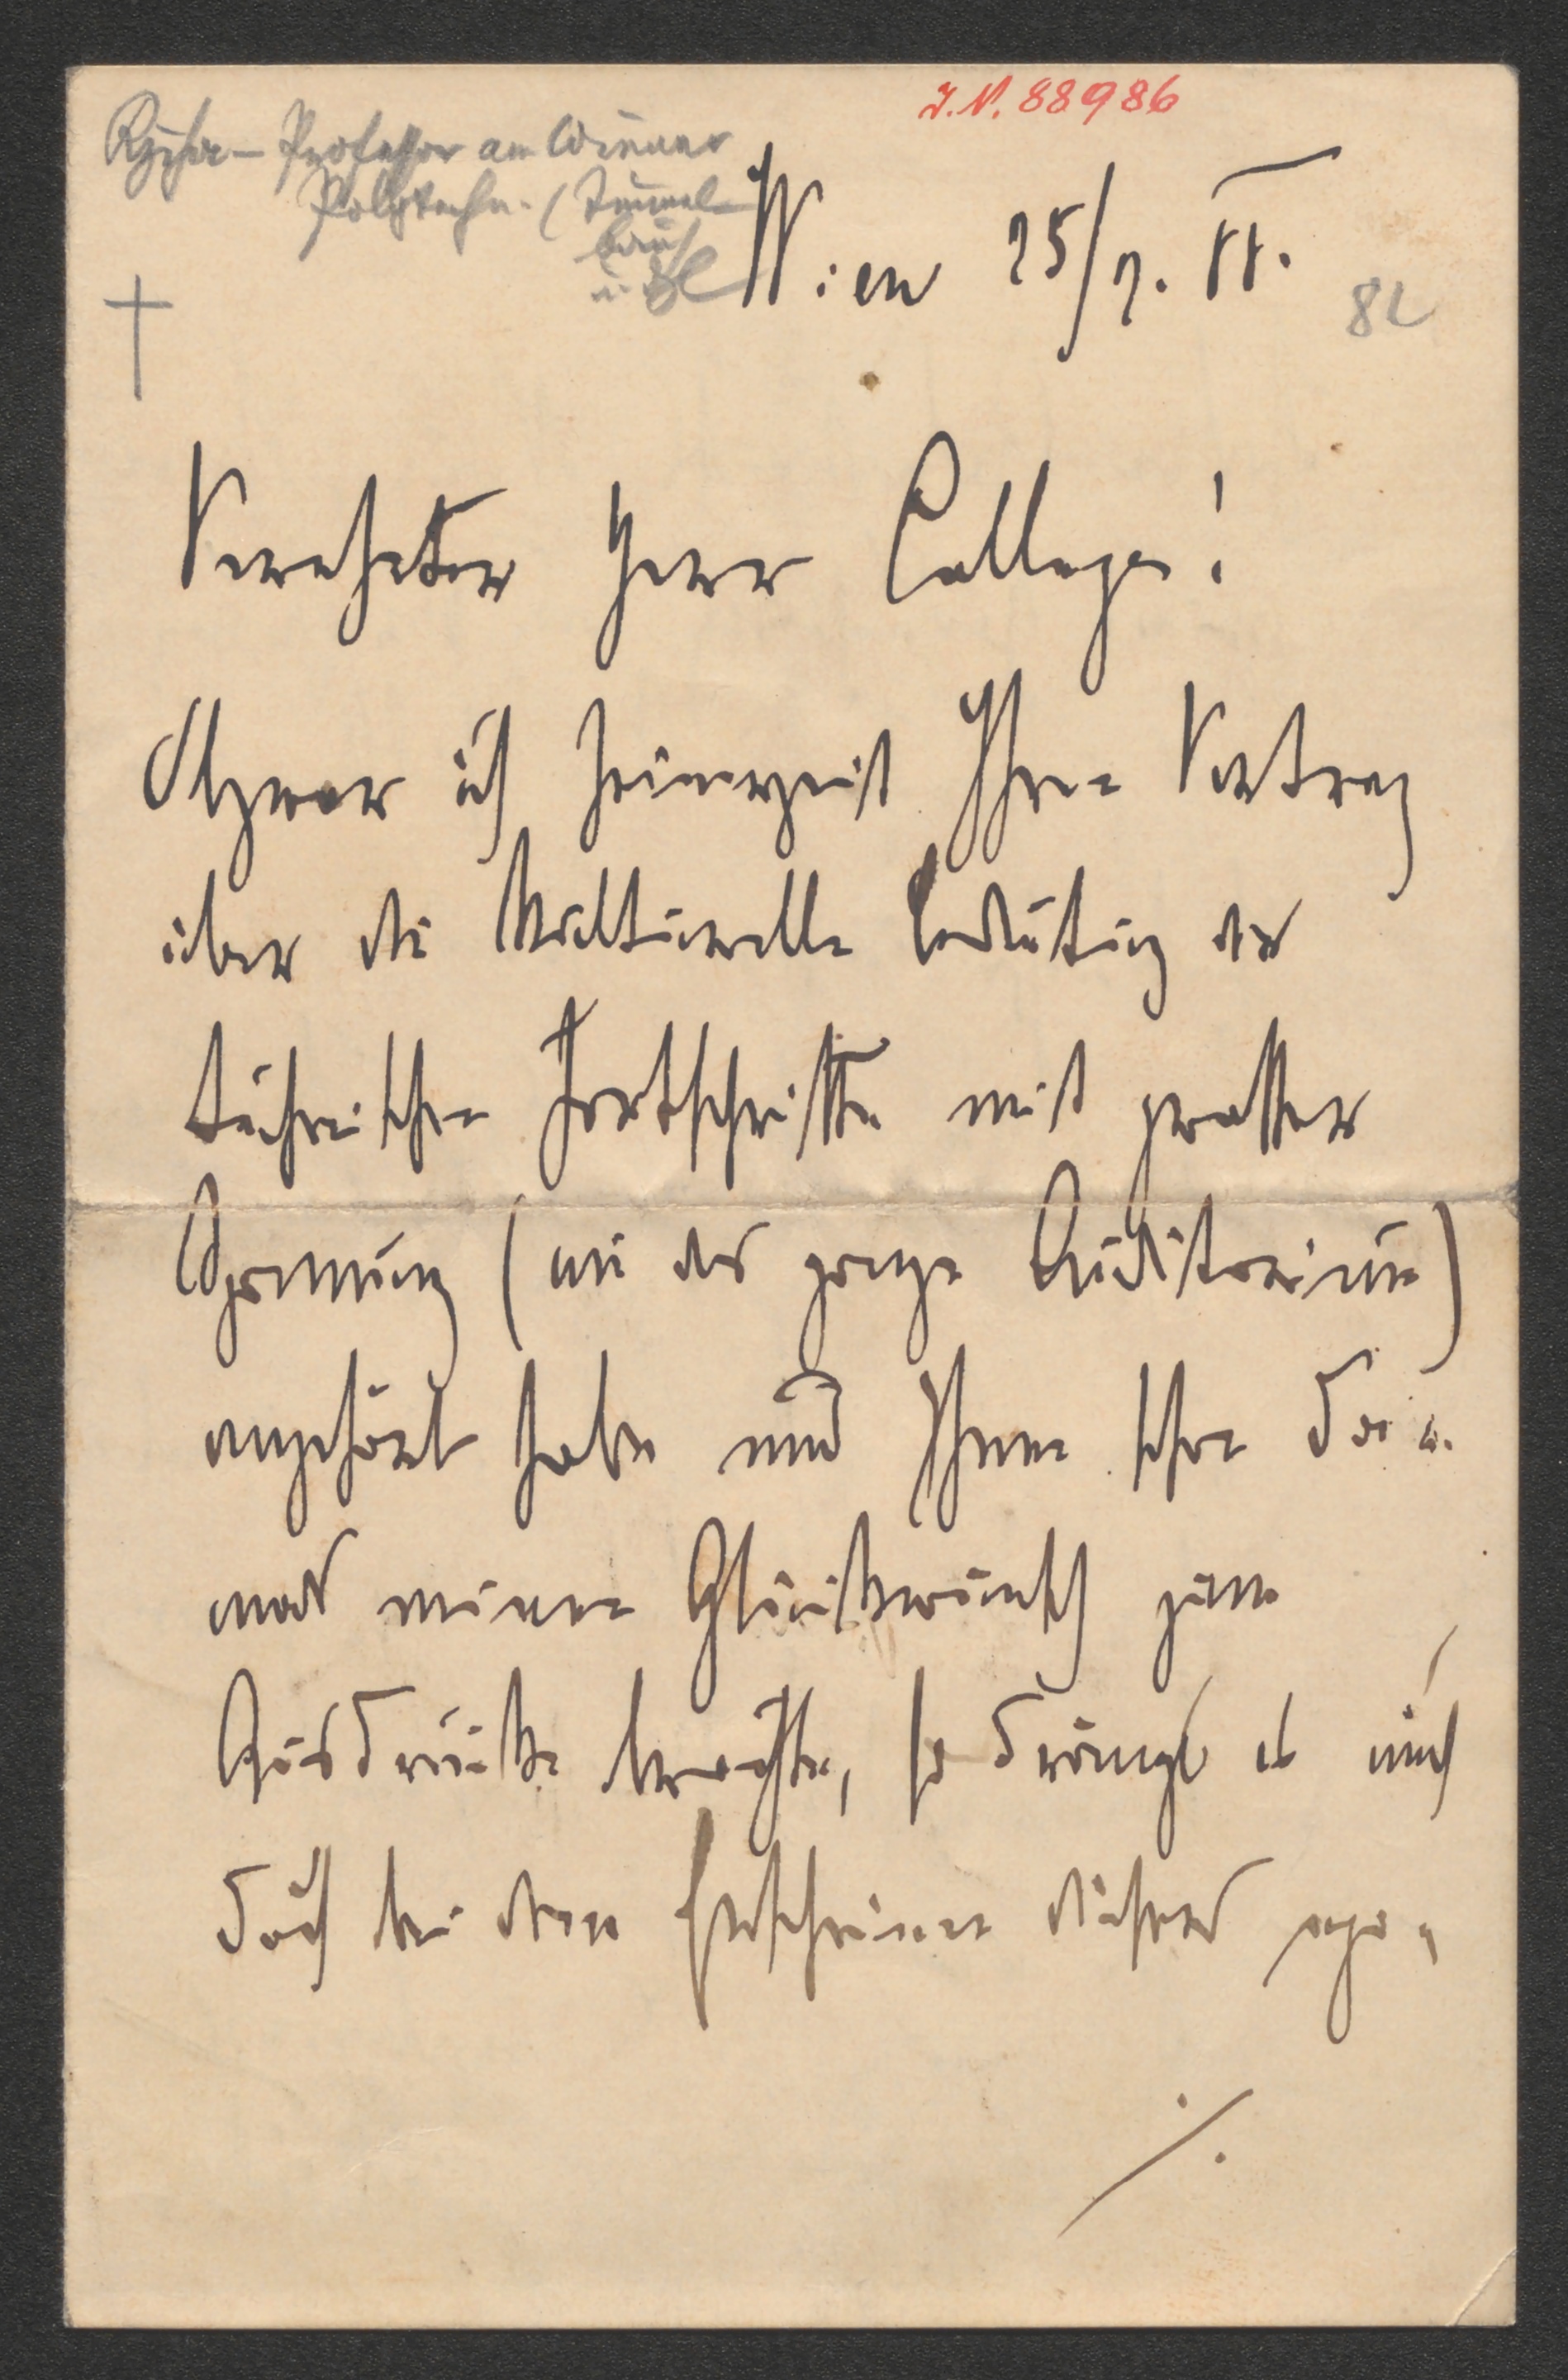 J.N. 88986
Rziha - Professor am Wiener
Polytechn. (Tunnel-
bau
Wien 25/2. 77.
82
Verehrter Herr College!
Obzwar ich seinerzeit Ihren Vortrag
über die kulturelle Bedeutung der
technischen Fortschritte mit großer
Spannung (wie das ganze Auditorium)
angehört habe und Ihnen schon da-
mals meinen Glückwunsch zum
Ausdrucke brachte, so drängt es mich
doch bei dem Erscheinen dieses
./.